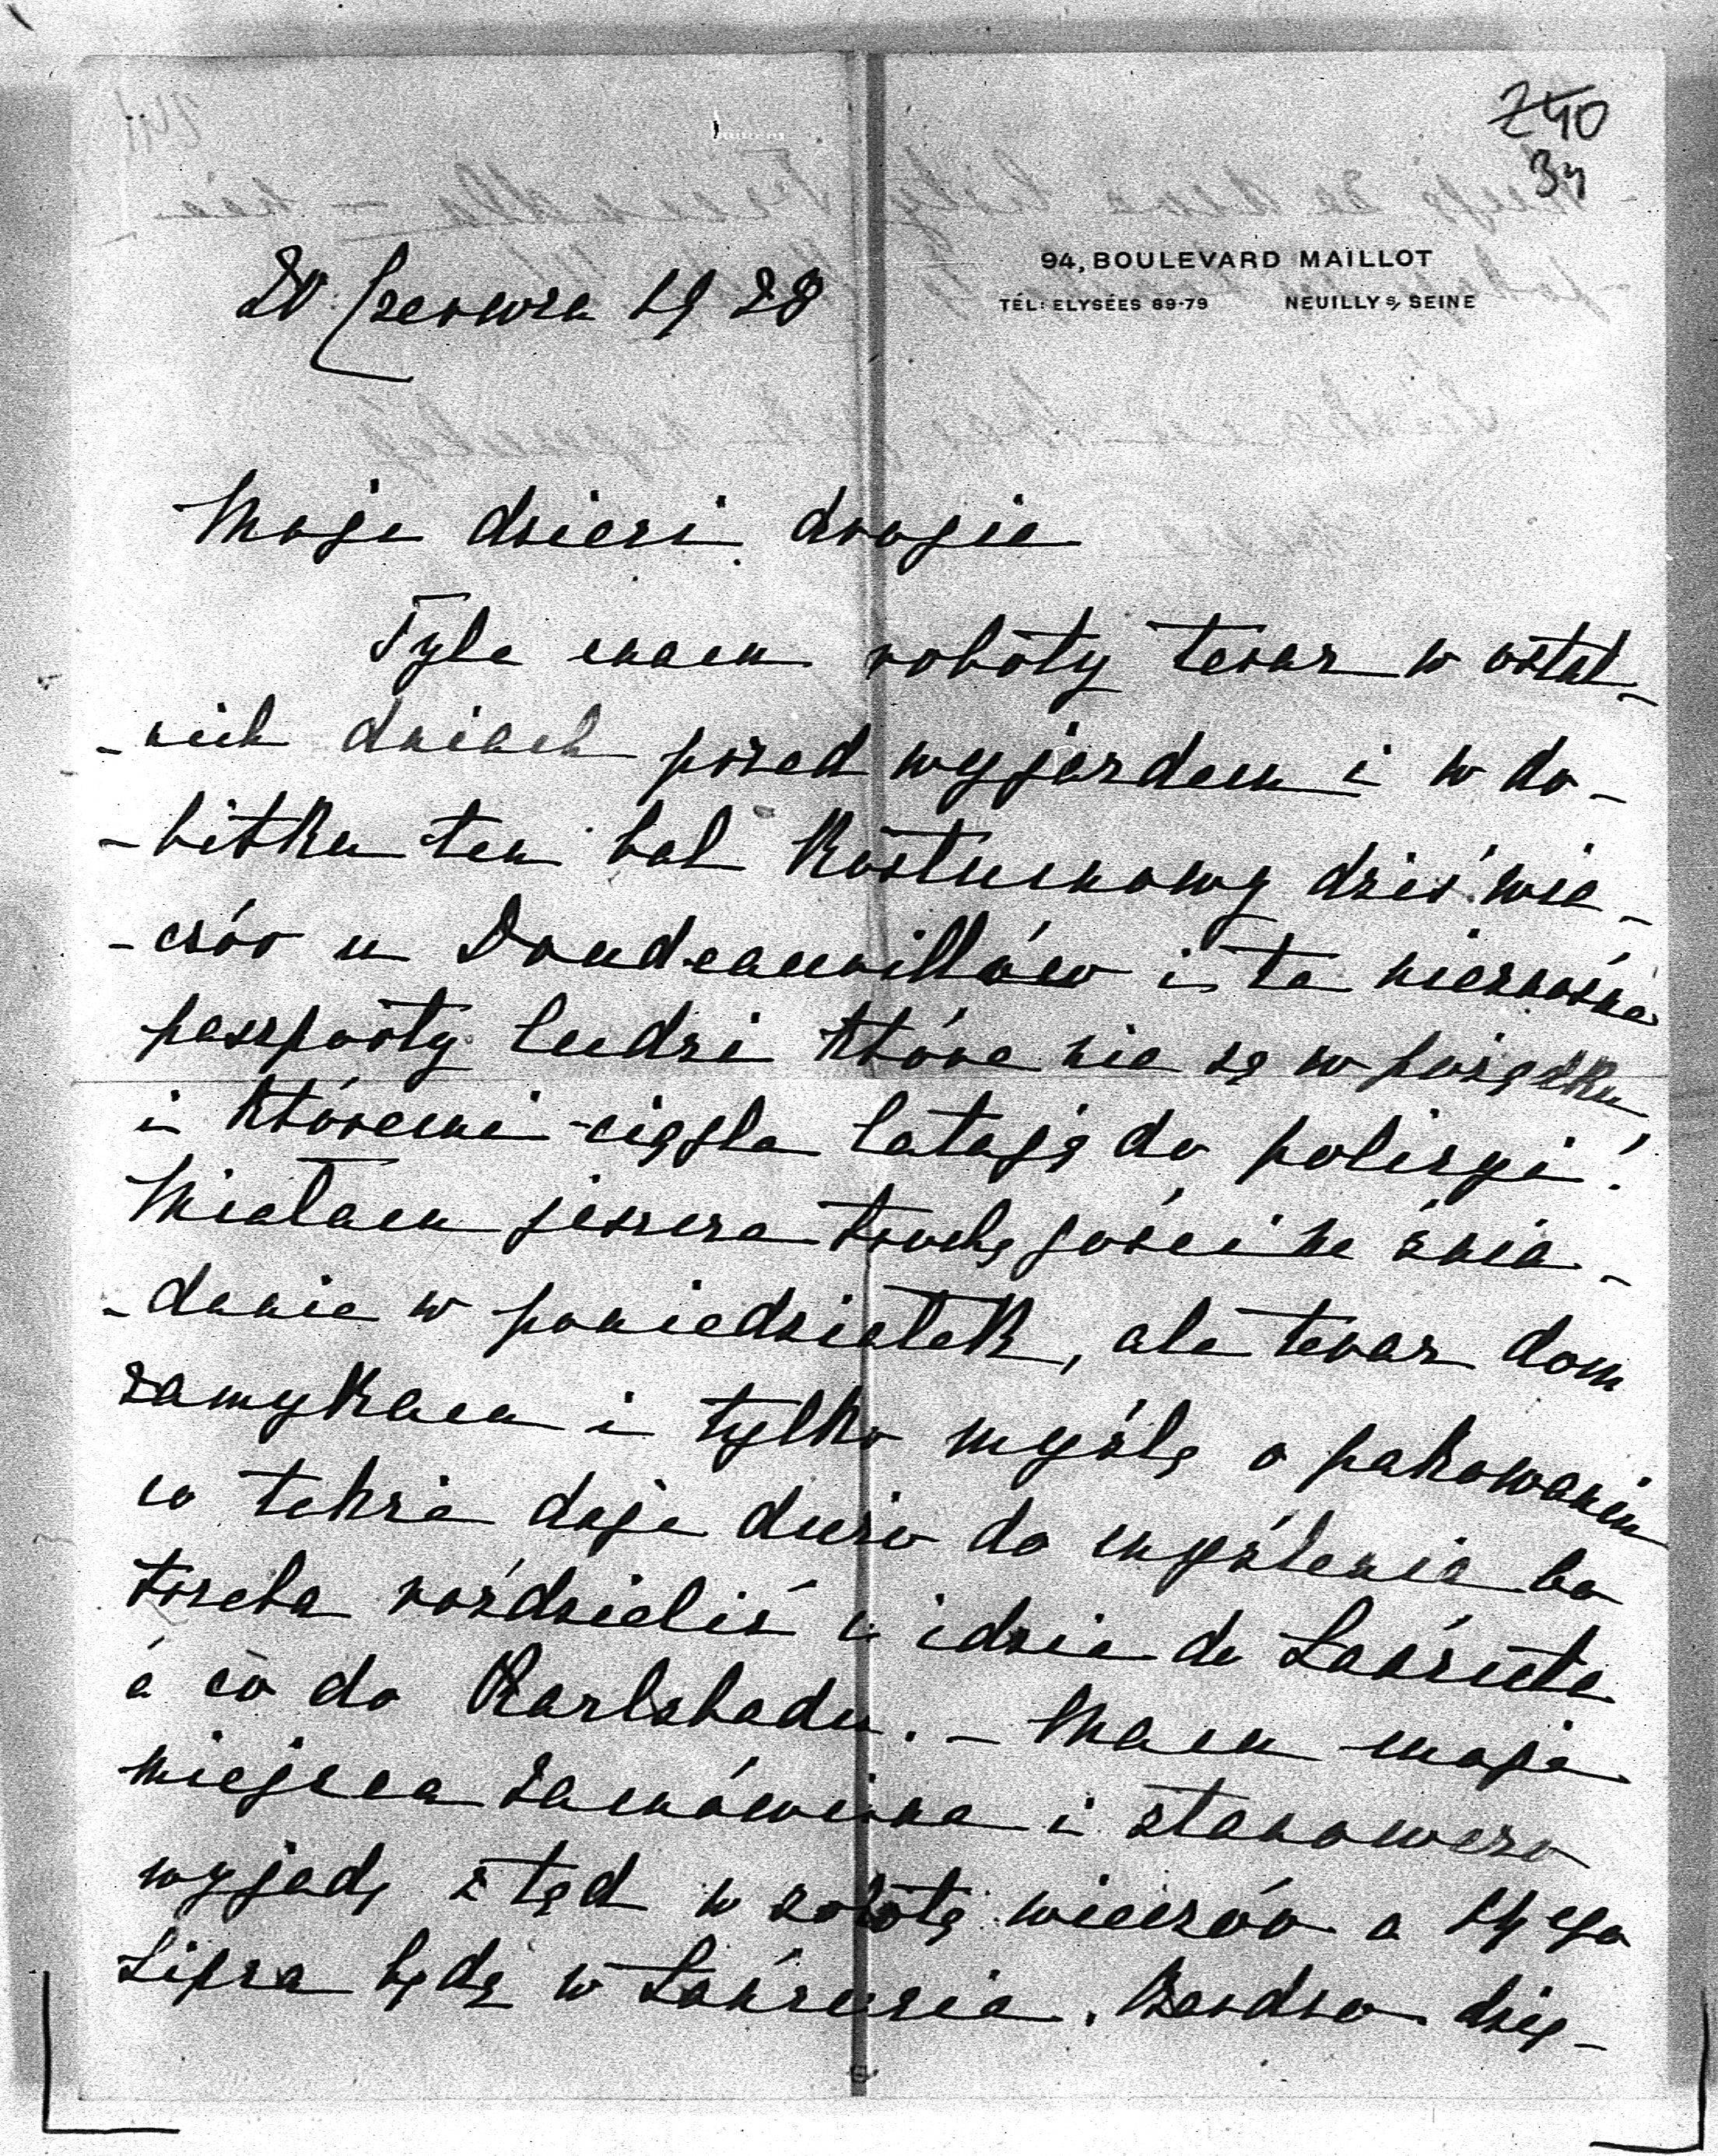 240
34
94, BOULEVARD MAILLOT
TÉL: ELYSÉES 69-79 NEUILLY s/ SEINE
20 Czerwca 1928
Moje dzieci drogie
Tyle mam roboty teraz w ostat-
-nich dniach przed wyjazdem i w do-
-bitku ten bal Kostiumowy dziś wie-
-czór u Doudeauvillów i te nieznośne
paszporty ludzi które nie są w porządku,
i któremi ciągle latają do policyi!
Miałam jeszcze trochę gości na śnia-
-danie w poniedziałek, ale teraz dom
zamykam i tylko myślę o pakowaniu
co także daje dużo do myślenia bo
trzeba rozdzielić co idzie do Łańcuta
a co do Karlsbadu. - Mam moje
miejsca zamówione i stanowczo
wyjadę z tąd w sobotę wieczór a 14ego
Lipca będę w Łańcucie. Bardzo dzię-